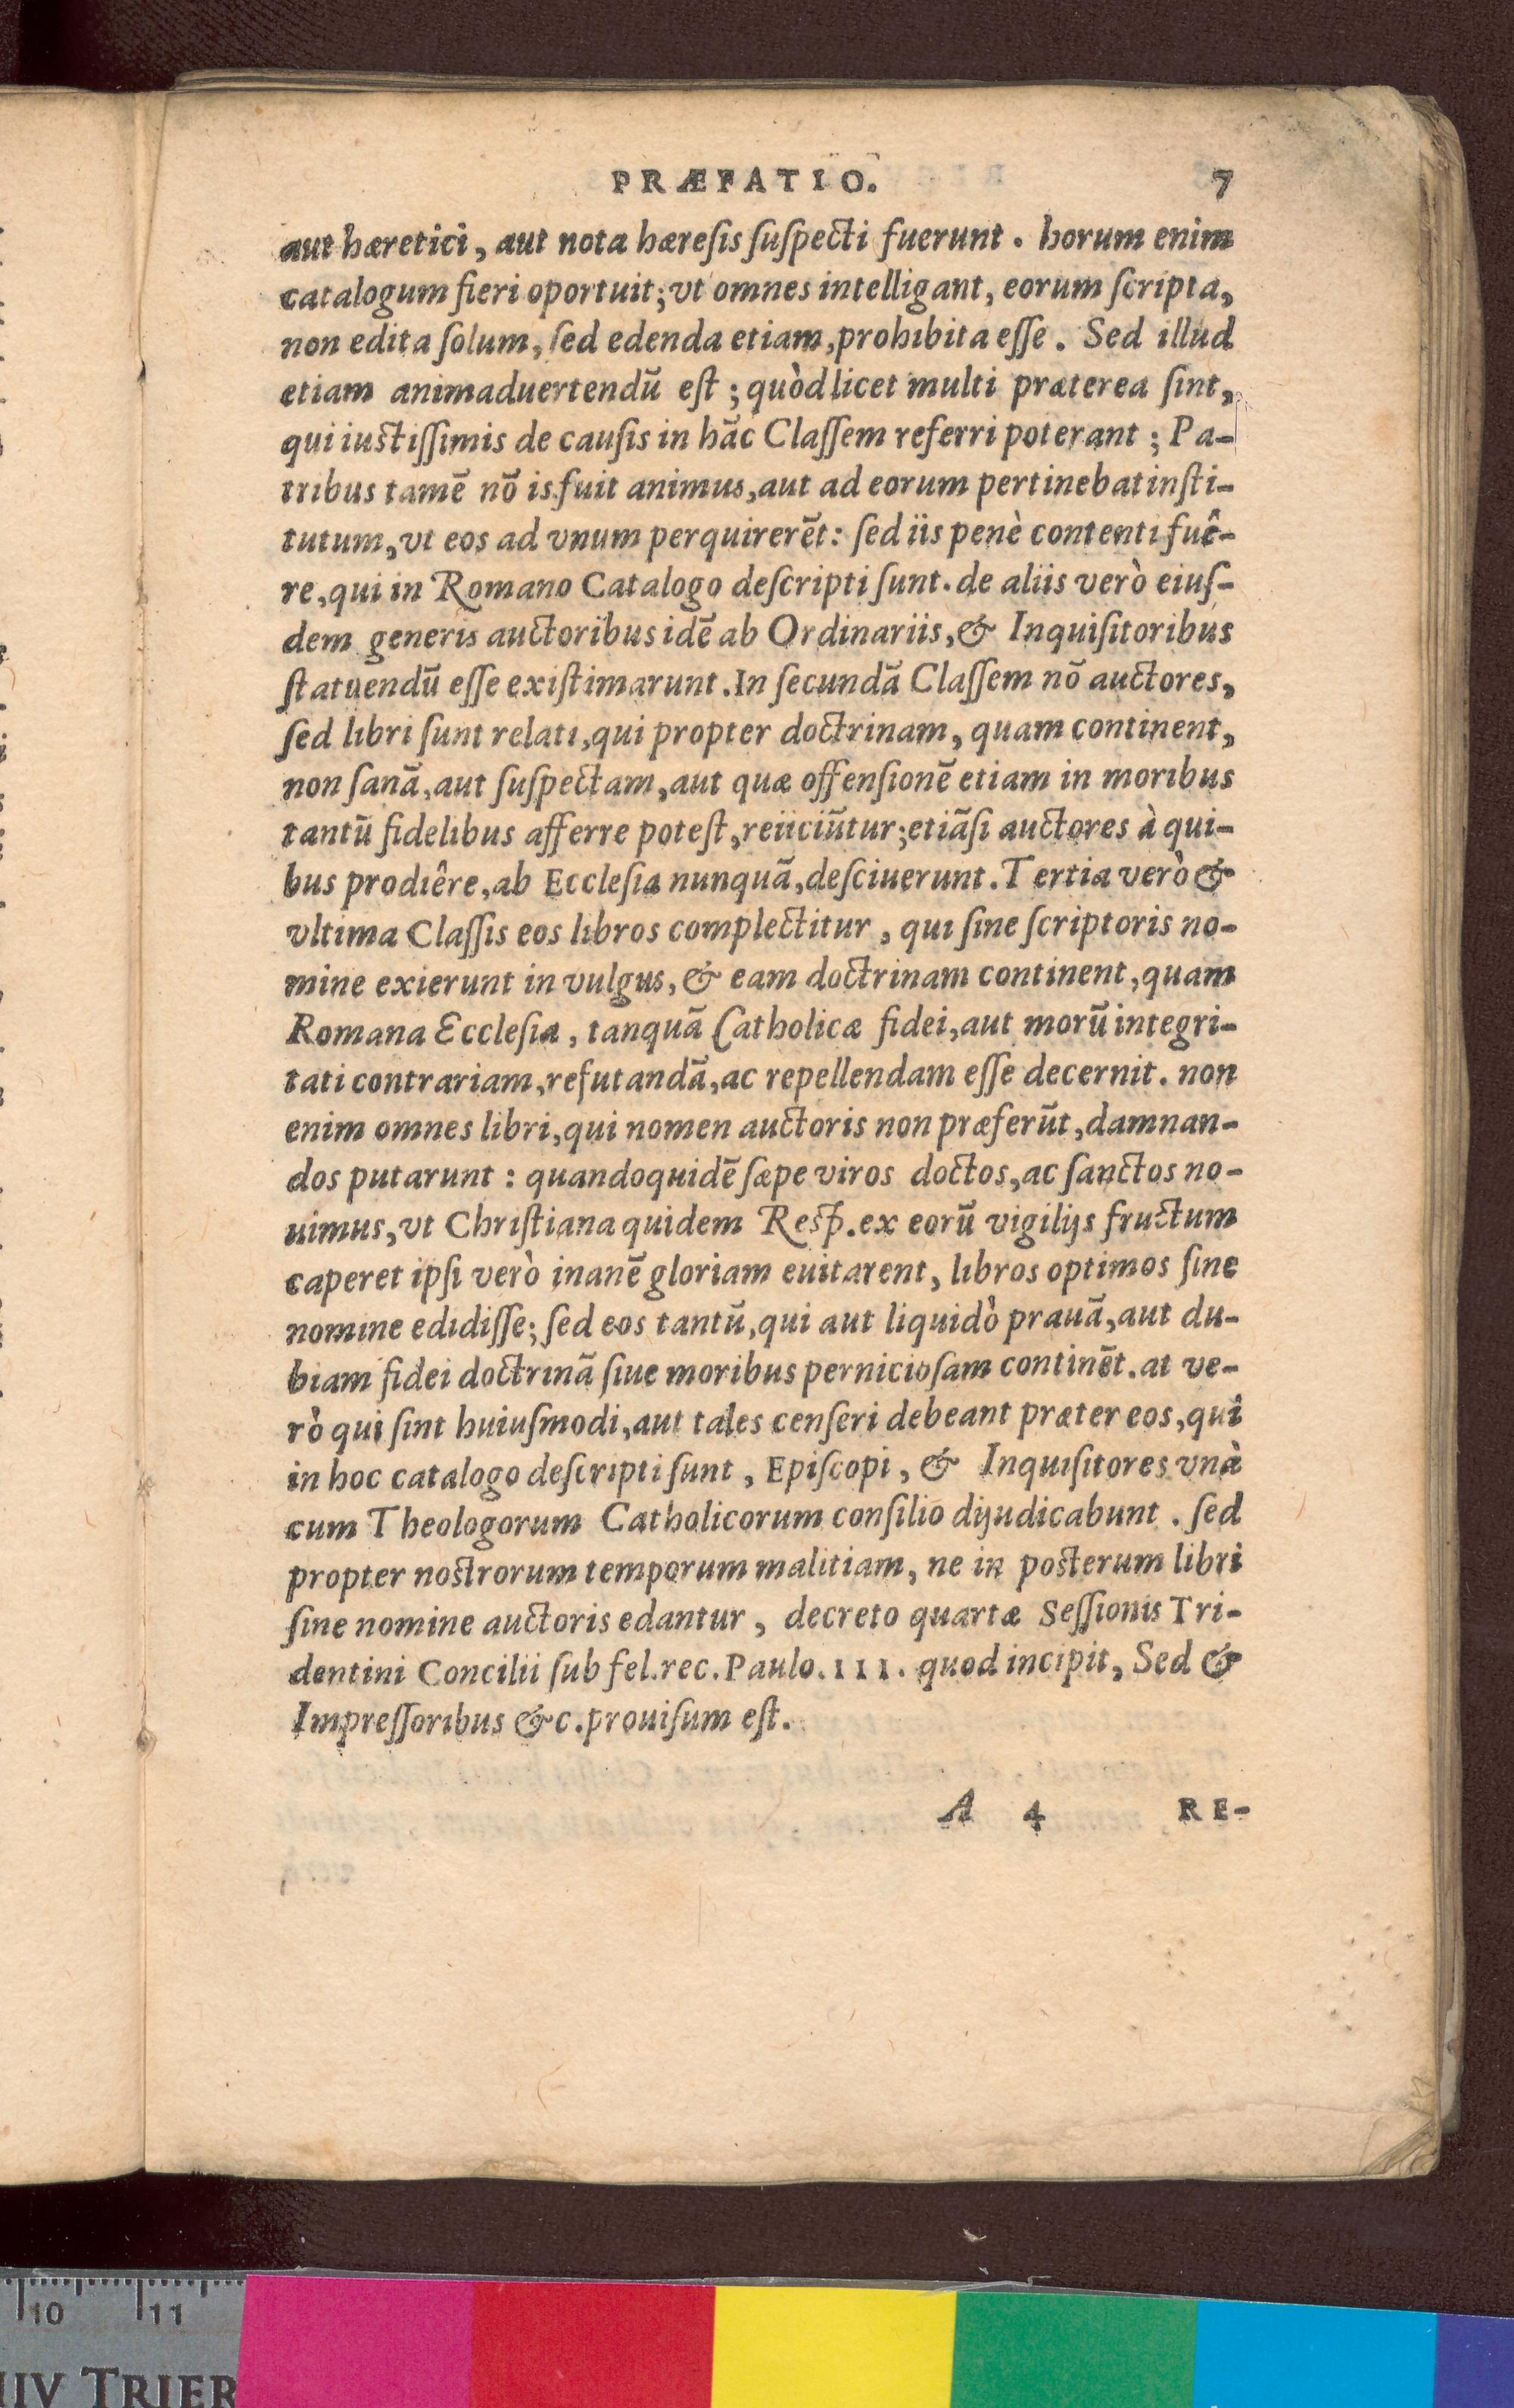 PRÆFATIO. 7
aut hæretici, aut nota hæreſis ſuſpecti fuerunt. horum enim
catalogum fieri oportuit; vt omnes intelligant, eorum ſcripta,
non edita ſolum, ſed edenda etiam, prohibita eſſe. Sed illud
etiam animaduertendũ eſt; quòd licet multi præterea ſint,
qui iuſtiſſimis de cauſis in hãc Claſſem referri poterant; Pa-
tribus tamẽ nõ is fuit animus, aut ad eorum pertinebat inſti-
tutum, vt eos ad vnum perquirerẽt: ſed iis penè contenti fuê-
re, qui in Romano Catalogo deſcripti ſunt. de aliis verò eiuſ-
dem generis auctoribus idẽ ab Ordinariis, & Inquiſitoribus
ſtatuendũ eſſe exiſtimarunt. In ſecundã Claſſem nõ auctores,
ſed libri ſunt relati, qui propter doctrinam, quam continent,
non ſanã, aut ſuſpectam, aut quæ offenſionẽ etiam in moribus
tantũ fidelibus afferre poteſt, reiiciũtur; etiãſi auctores à qui-
bus prodiêre, ab Eccleſia nunquã, deſciuerunt. Tertia verò &
vltima Claſſis eos libros complectitur, qui ſine ſcriptoris no-
mine exierunt in vulgus, & eam doctrinam continent, quam
Romana Eccleſia, tanquã Catholicæ fidei, aut morũ integri-
tati contrariam, refutandã, ac repellendam eſſe decernit. non
enim omnes libri, qui nomen auctoris non præferũt, damnan-
dos putarunt: quandoquidẽ ſæpe viros doctos, ac ſanctos no-
uimus, vt Chriſtiana quidem Reſp. ex eorũ vigilijs fructum
caperet ipſi verò inanẽ gloriam euitarent, libros optimos ſine
nomine edidiſſe; ſed eos tantũ, qui aut liquidò prauã, aut du-
biam fidei doctrinã ſiue moribus pernicioſam continẽt. at ve-
rò qui ſint huiuſmodi, aut tales cenſeri debeant præter eos, qui
in hoc catalogo deſcripti ſunt, Epiſcopi, & Inquiſitores vnà
cum Theologorum Catholicorum conſilio dijudicabunt. ſed
propter noſtrorum temporum malitiam, ne in poſterum libri
ſine nomine auctoris edantur, decreto quartæ Seſſionis Tri-
dentini Concilii ſub fel. rec. Paulo. III. quod incipit, Sed &
Impreſſoribus &c. prouiſum eſt.
A 4 RE-
10 11
TRIER